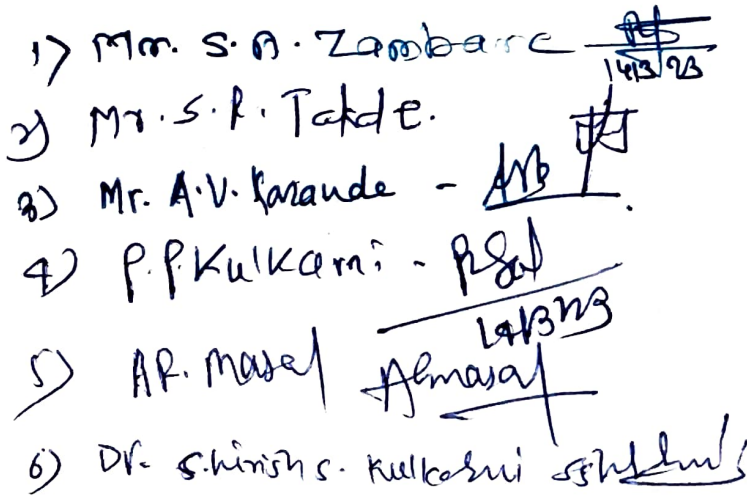 1) Mr. S. A. Zambare
14/3/23
2) Mr. S. R. Takde.
3) Mr. A. V. Karande -
4) P. P. Kulkarni -
14/3/23
5) A R. Masal Armasal
6) Dr. Shirish S. Kulkarni